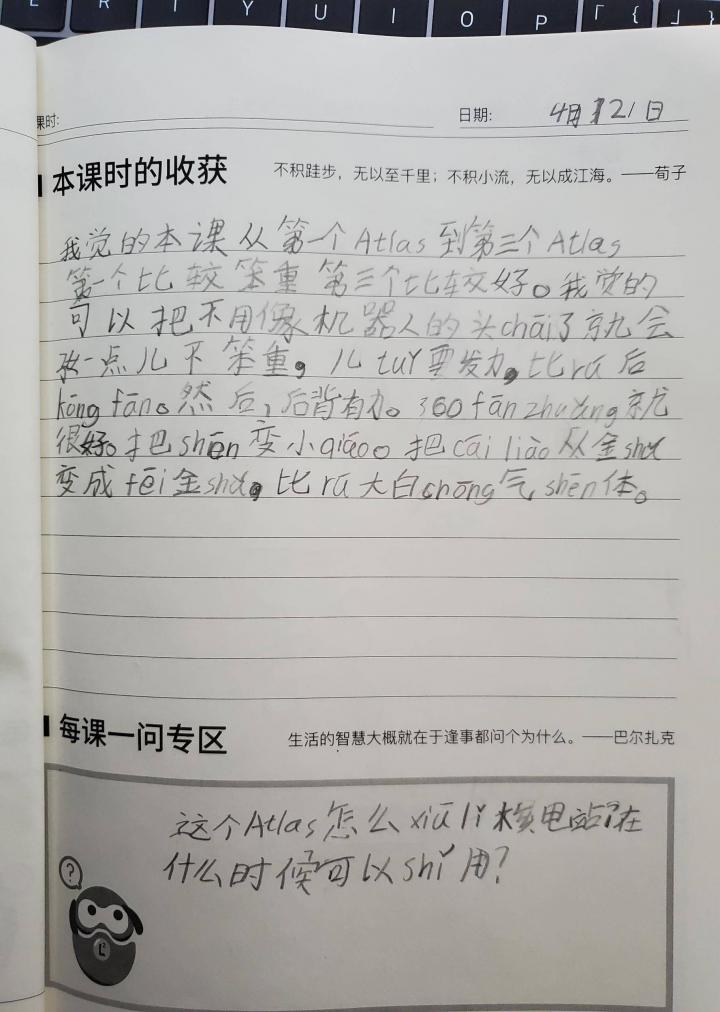 R T Y U I O P 「 { 」 }
课时:
日期: 4月21日
本课时的收获 不积跬步，无以至千里；不积小流，无以成江海。——荀子
我觉的本课从第一个Atlas到第三个Atlas
第一个比较笨重 第三个比较好。我觉的
可以把不用像机器人的头chāi了就会
一点儿不笨重，儿tuǐ要发力，比rú后
kōng fān。然后，后背有力。360 fān zhuǎng就
很好。把shēn变小qiǎo。把cāi liào从金shǔ
变成fēi金shǔ，比rú大白chōng气shēn体。
每课一问专区 生活的智慧大概就在于逢事都问个为什么。——巴尔扎克
这个Atlas怎么xiū lǐ核电站?在
什么时候可以shǐ用?
?